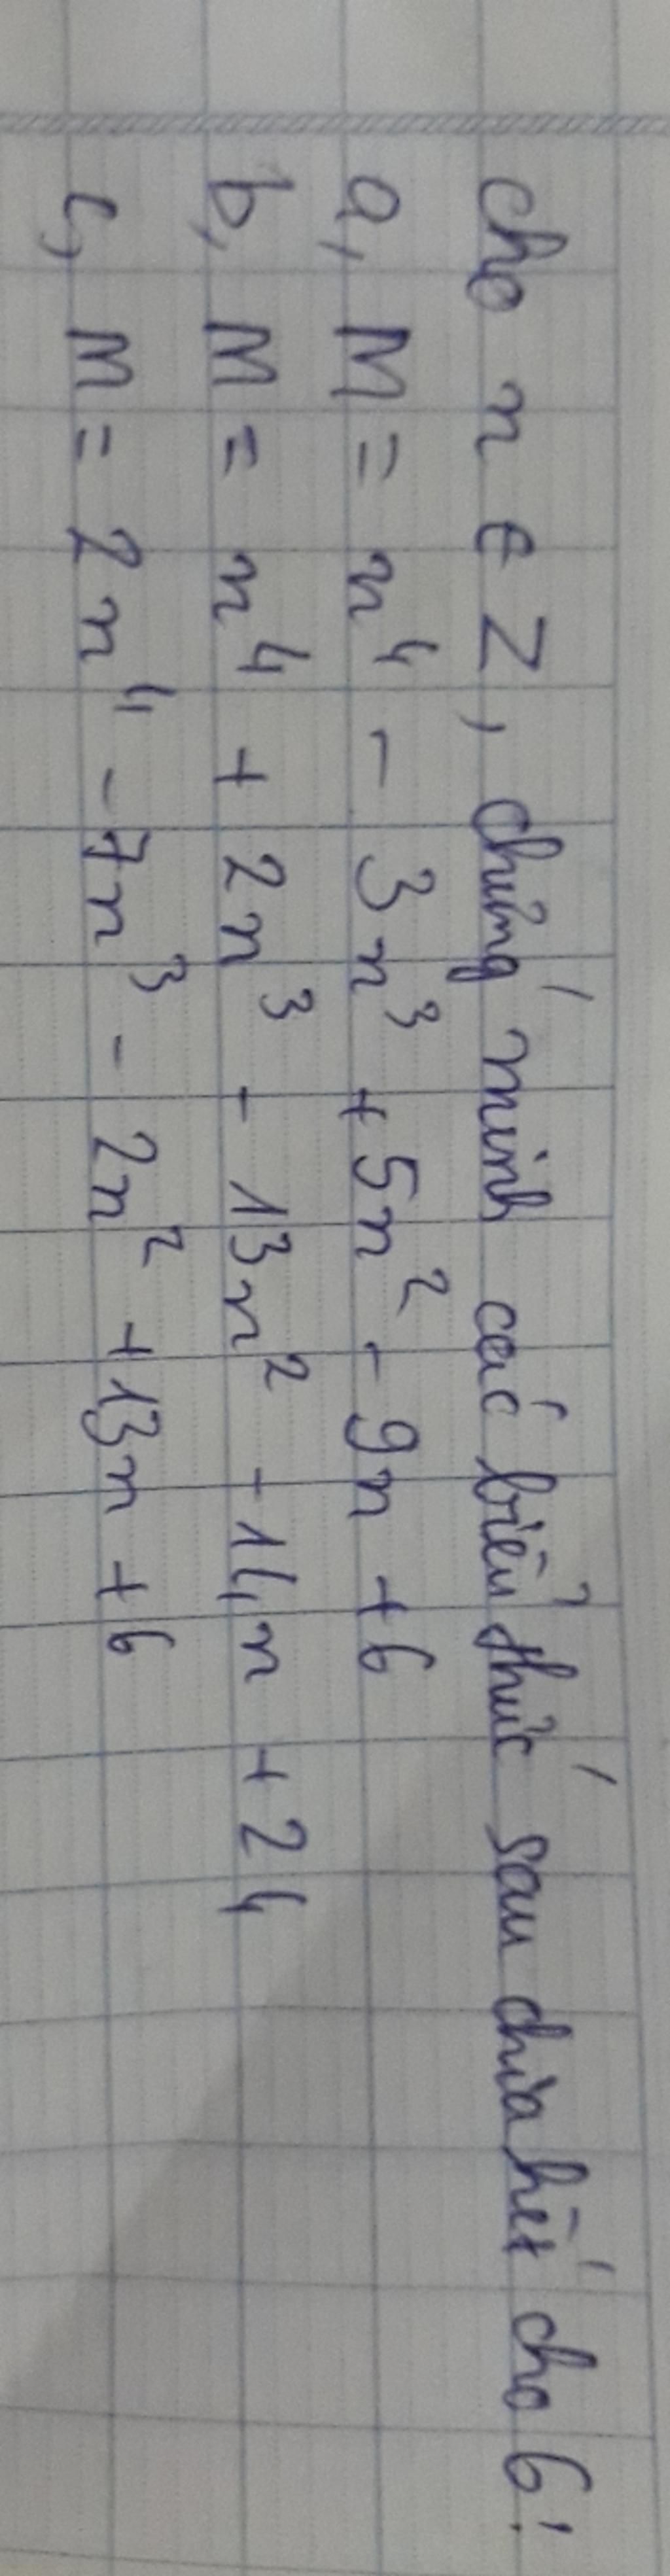 cho n ∈ Z, chứng minh các biểu thức sau chia hết cho 6!
a, M = n⁴ - 3n³ + 5n² - 9n + 6
b, M = n⁴ + 2n³ - 13n² - 14n + 24
c, M = 2n⁴ - 7n³ - 2n² + 13n + 6